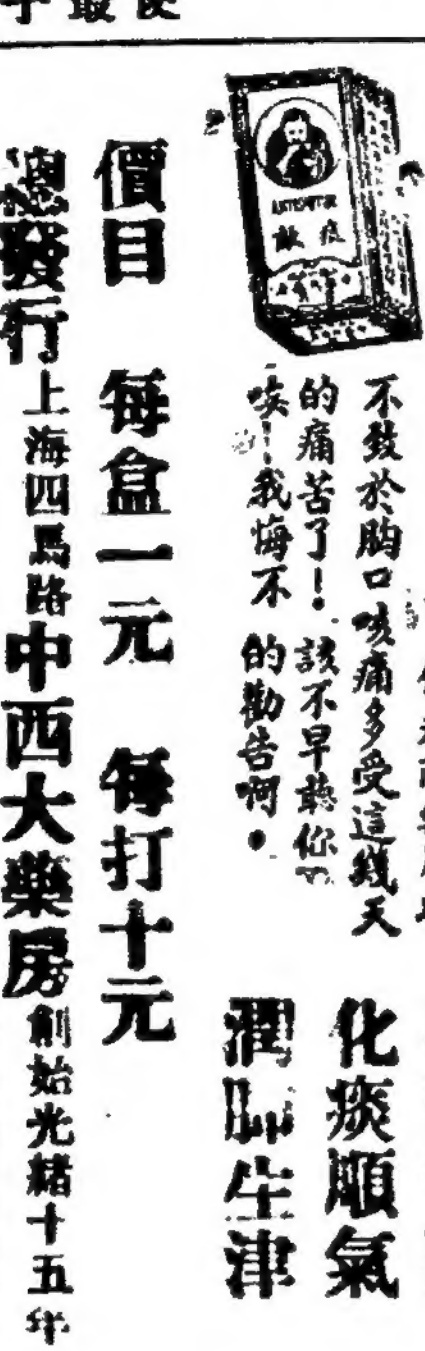 不致於胸口咳痛多受這幾天
的痛苦了！該不早聽你
唉！我悔不 的勸告啊
化痰順氣
潤肺生津
價目 每盒一元 每打十元
總發行上海四馬路中西大藥房創始光緒十五年